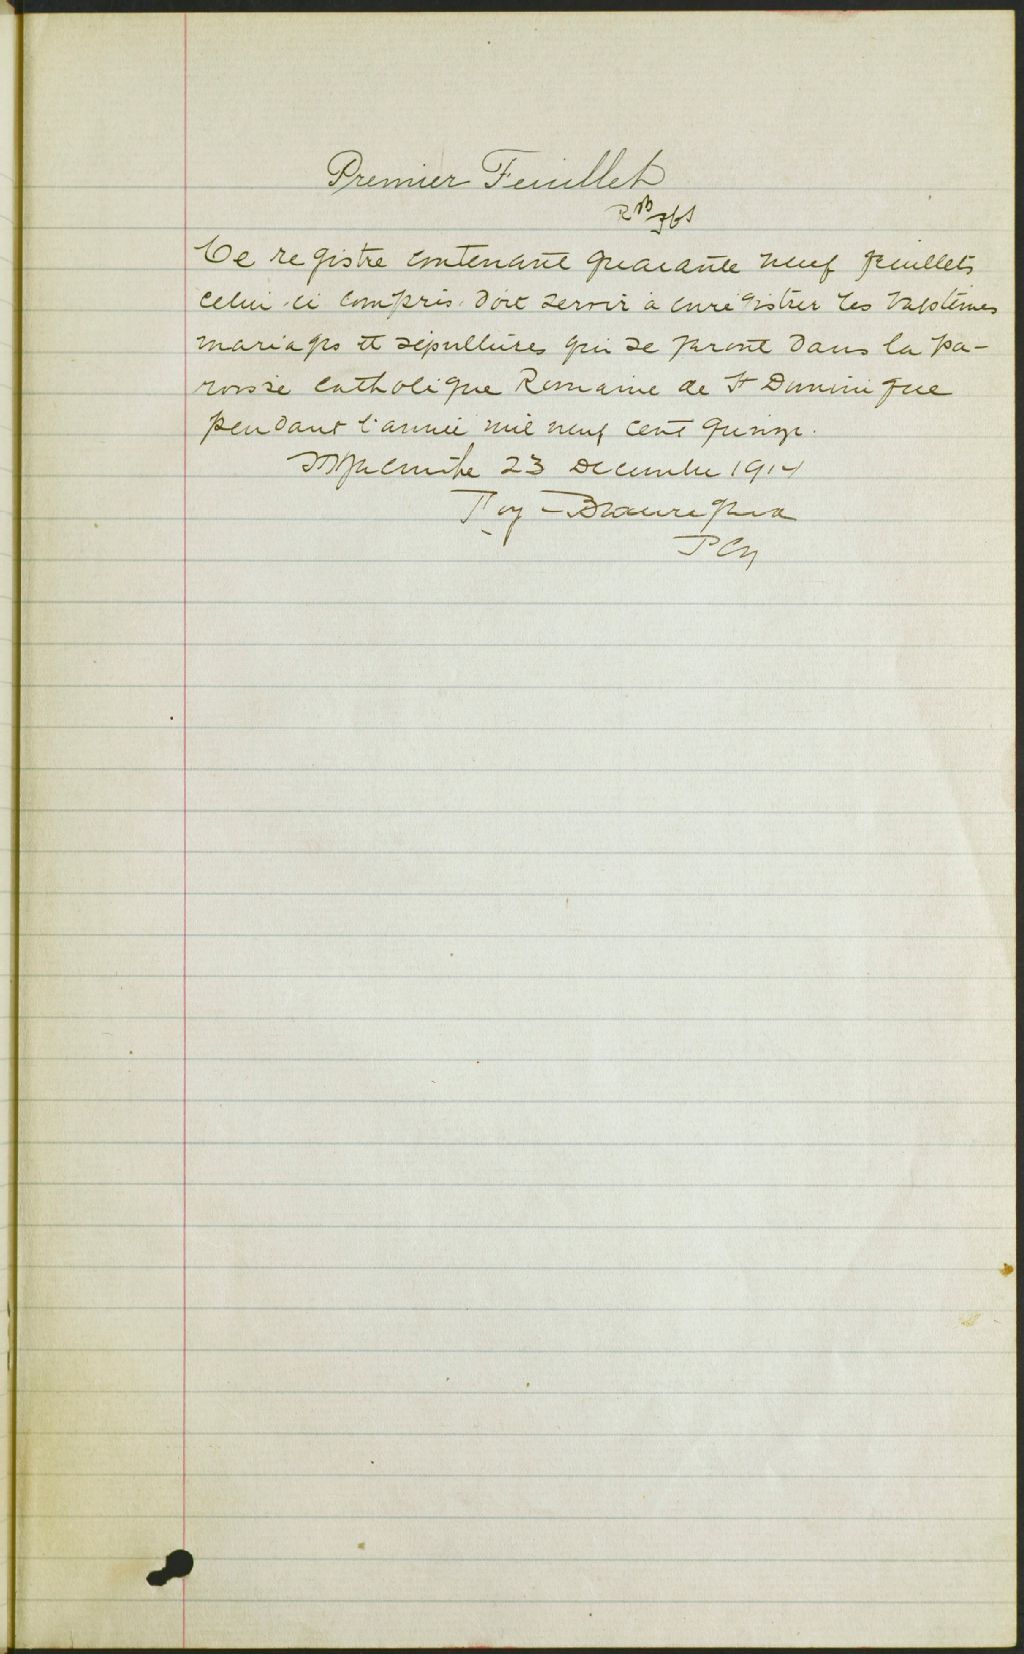 Premier Feuillet
RB
Ce registre contenant quarante neuf feuillets
celui-ci compris doit servir à enregistrer les baptêmes
mariages et sépultures qui se feront dans la pa-
roisse catholique Romaine de St Dominique
pendant l'année mil neuf cent quinze.
St Hyacinthe 23 Décembre 1914
Roy - Beauregard
PCS